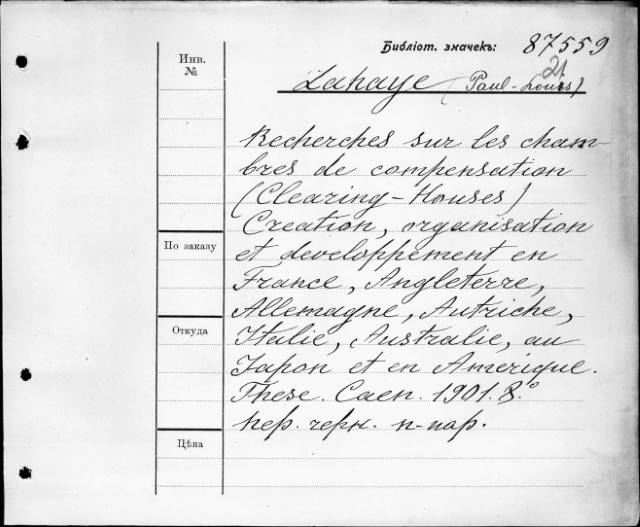 Инв.
№
Библіот. значекъ: 87559
21
Lahaye (Paul-Louis)
Recherches sur les cham-
bres de compensation
(Clearing-Houses)
Creation, organisation
et developpement en
France, Angleterre,
Allemagne, Autriche,
Italie, Australie, au
Japon et en Amerique.
These. Caen. 1901. 8.°
пер. черн. п-пар.
По заказу
Откуда
Цѣна